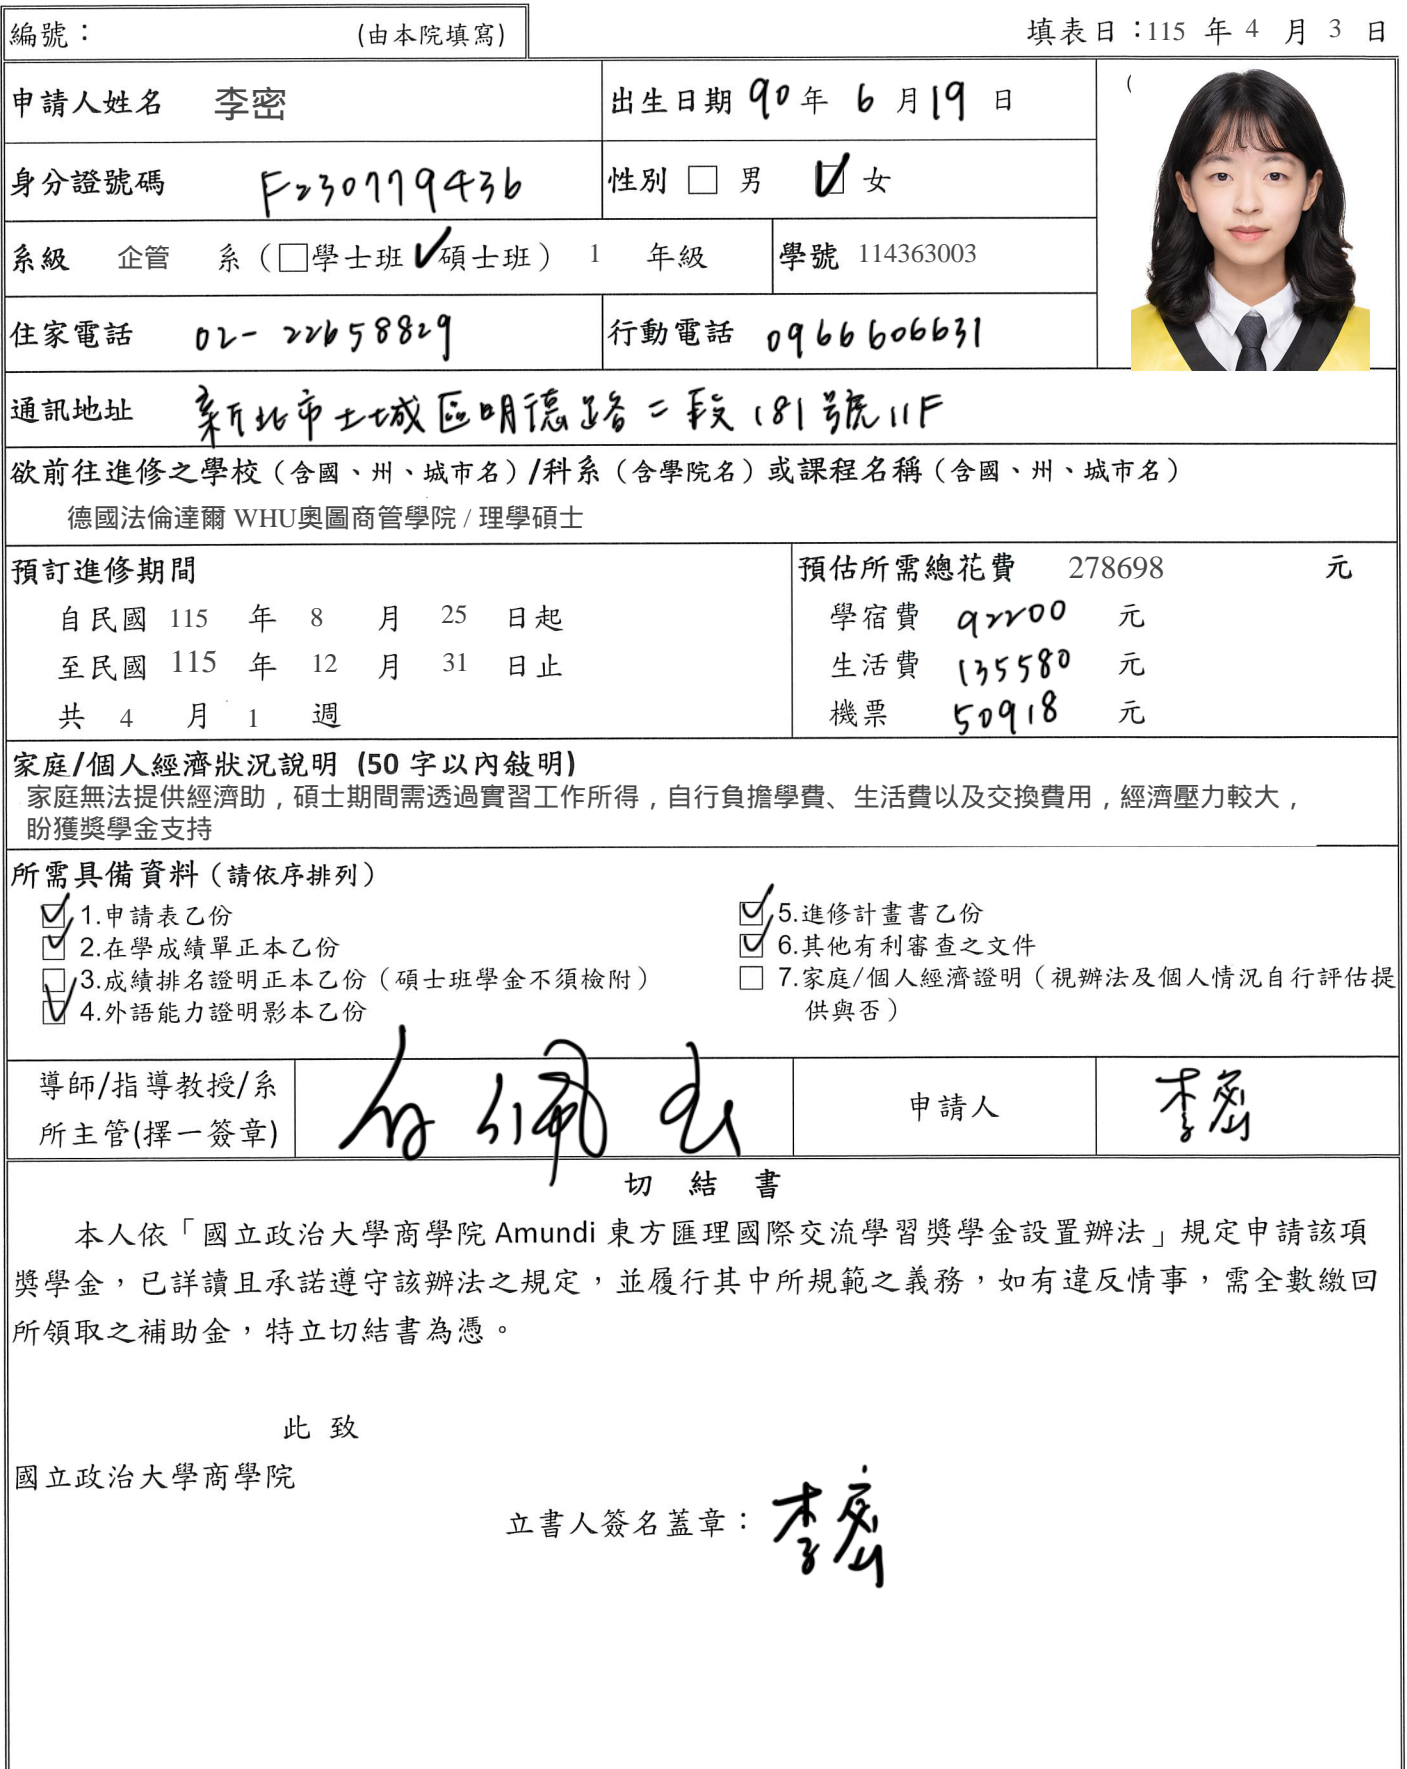 編號： (由本院填寫)
填表日：115 年 4 月 3 日
申請人姓名 李密
出生日期 90 年 6 月 19 日
(
身分證號碼 F230779436
性別 □ 男 ☑ 女
系級 企管 系（□學士班 ☑碩士班） 1 年級
學號 114363003
住家電話 02-22658829
行動電話 0966606631
通訊地址 新北市土城區明德路二段181號11F
欲前往進修之學校（含國、州、城市名）/科系（含學院名）或課程名稱（含國、州、城市名）
德國法倫達爾 WHU奧圖商管學院 / 理學碩士
預訂進修期間
自民國 115 年 8 月 25 日起
至民國 115 年 12 月 31 日止
共 4 月 1 週
預估所需總花費 278698 元
學宿費 92200 元
生活費 135580 元
機票 50918 元
家庭/個人經濟狀況說明 (50 字以內敍明)
家庭無法提供經濟助，碩士期間需透過實習工作所得，自行負擔學費、生活費以及交換費用，經濟壓力較大，
盼獲獎學金支持
所需具備資料（請依序排列）
☑ 1.申請表乙份
☑ 2.在學成績單正本乙份
□ 3.成績排名證明正本乙份（碩士班學金不須檢附）
☑ 4.外語能力證明影本乙份
☑ 5.進修計畫書乙份
☑ 6.其他有利審查之文件
□ 7.家庭/個人經濟證明（視辦法及個人情況自行評估提
供與否）
導師/指導教授/系
所主管(擇一簽章)
申請人 李密
切 結 書
本人依「國立政治大學商學院 Amundi 東方匯理國際交流學習獎學金設置辦法」規定申請該項
獎學金，已詳讀且承諾遵守該辦法之規定，並履行其中所規範之義務，如有違反情事，需全數繳回
所領取之補助金，特立切結書為憑。
此 致
國立政治大學商學院
立書人簽名蓋章： 李密